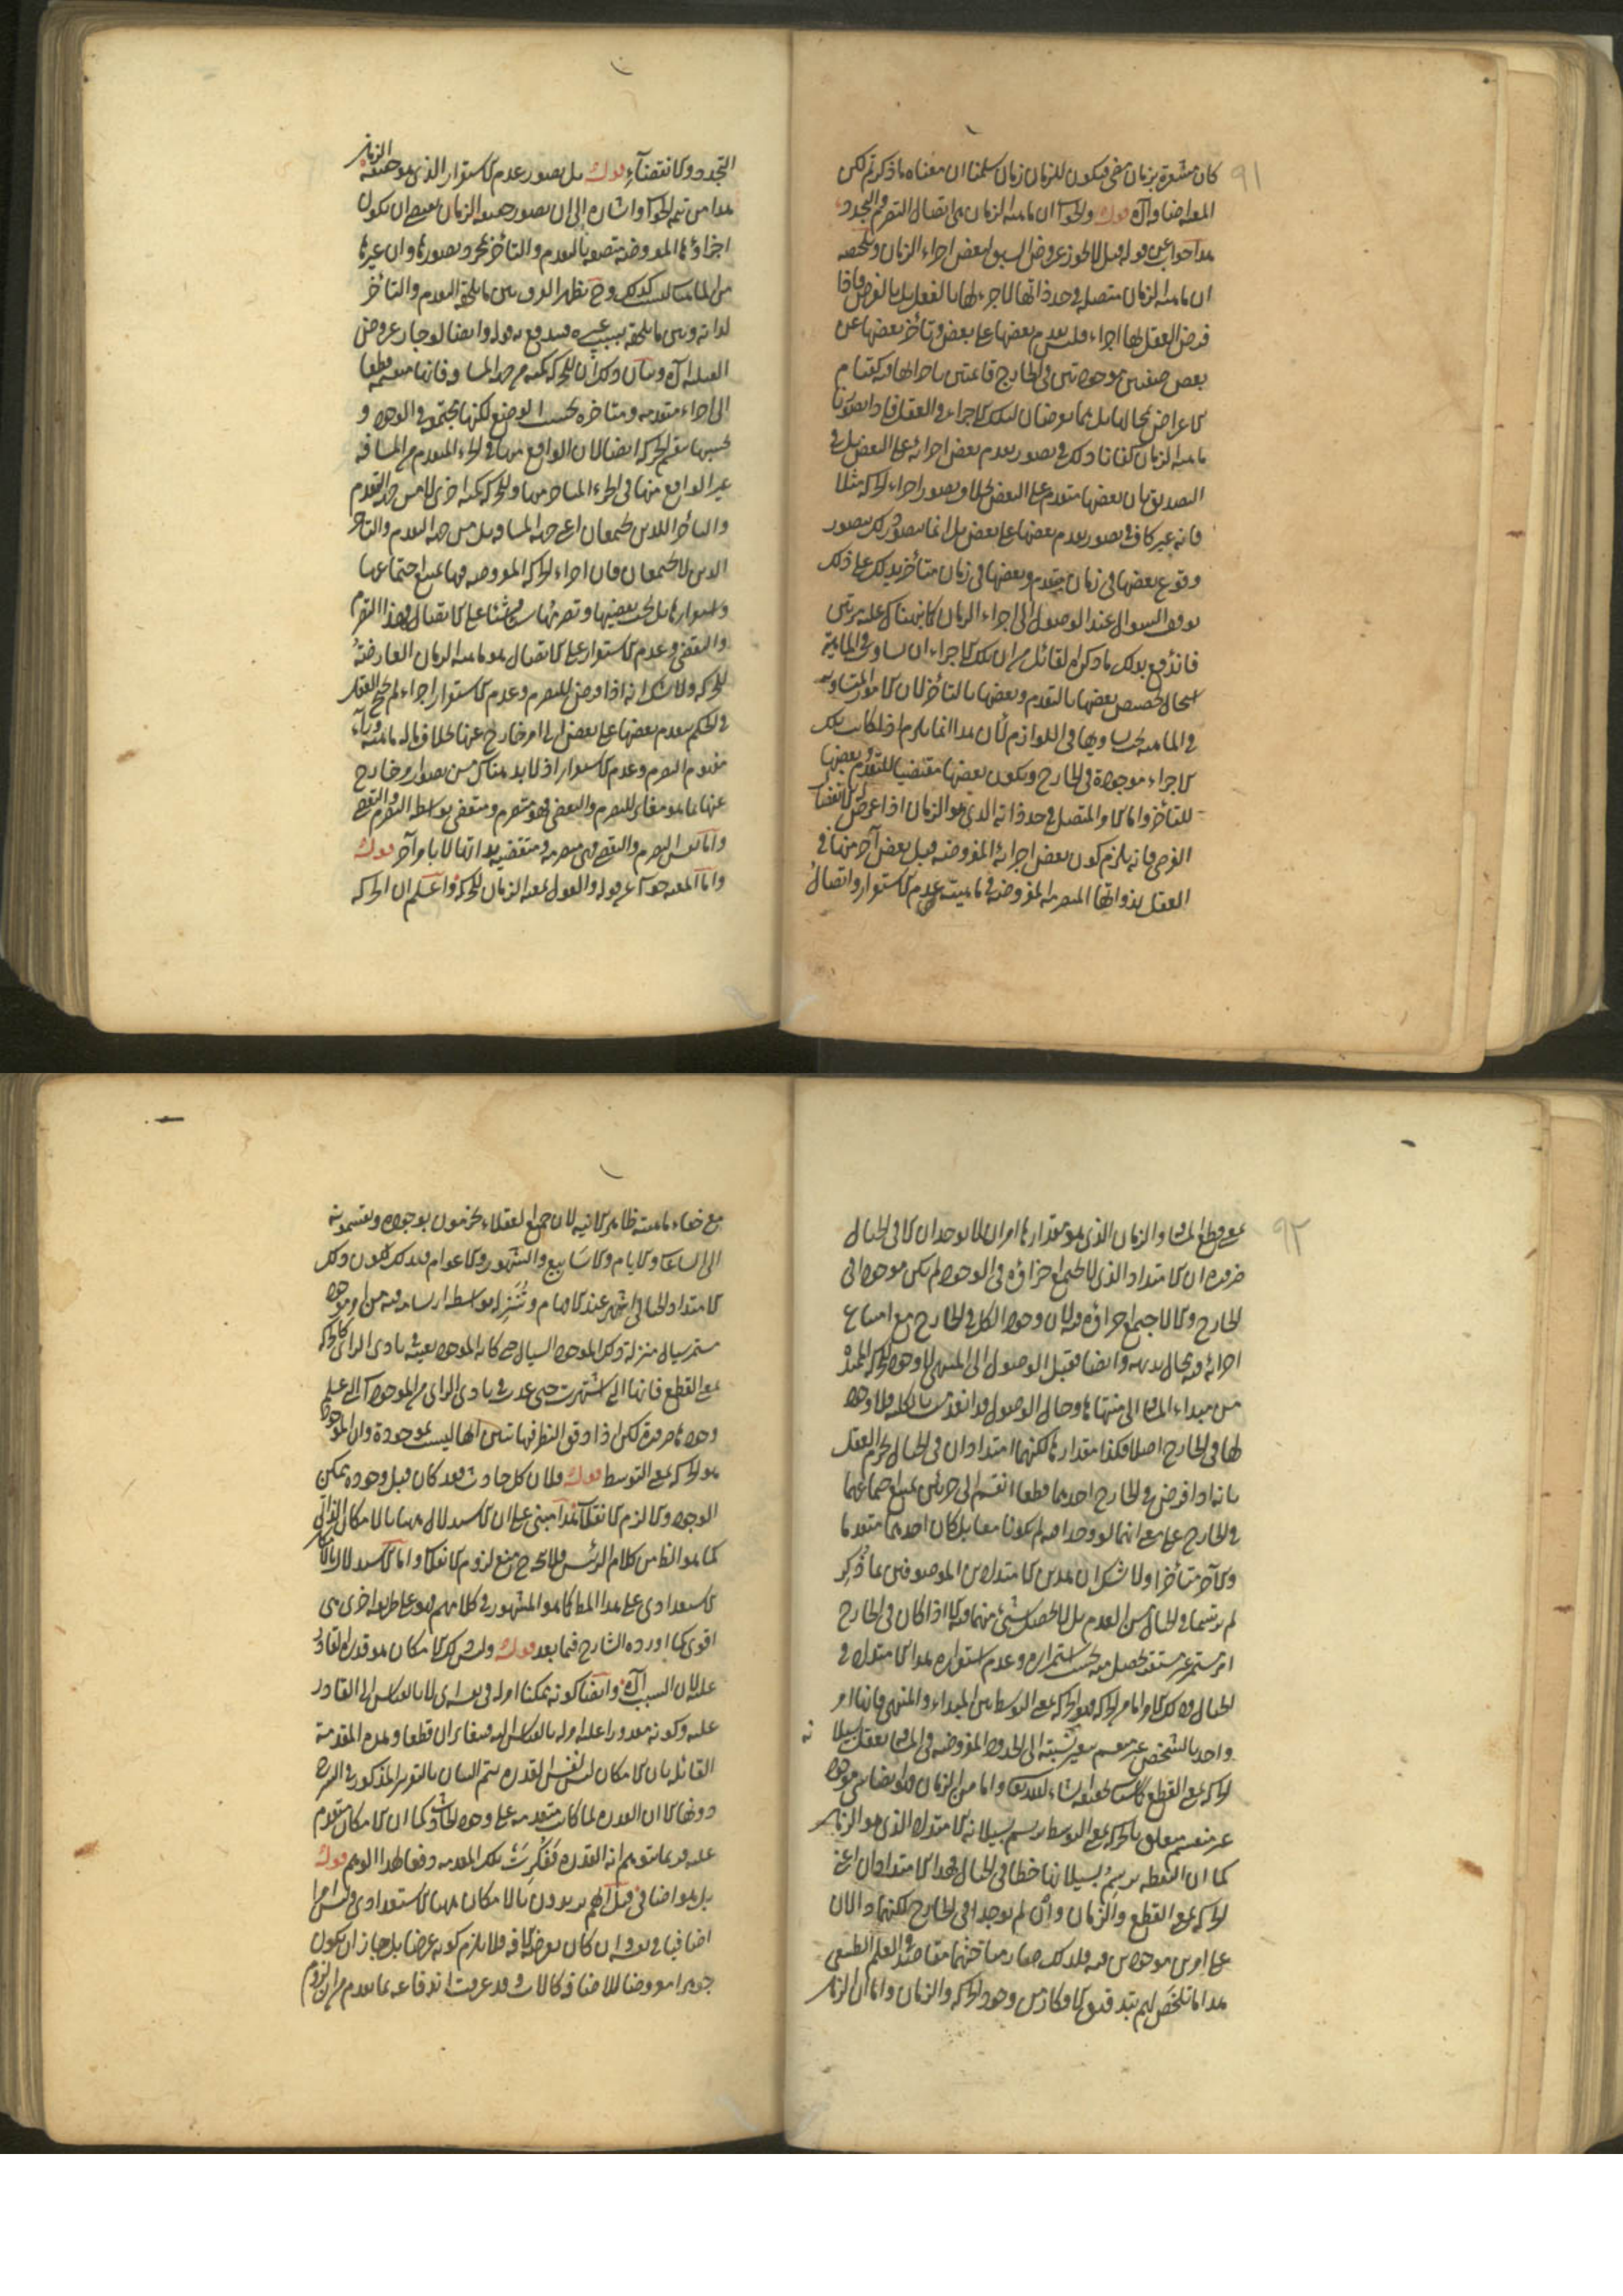 ٩١
كان مشعرة بزمان مضى فيكون للزمان زمان سلمنا ان معناه ما ذكرتم لكن
المعه ايضا وآه قوله والجواب ان ماهية الزمان هى اتصال التصرم والتجدد
هذا جواب عن قوله قيل لا يجوز عروض السبق لبعض اجزاء الزمان وتلخيصه
ان ماهية الزمان متصلة فى حد ذاتها لا جزء لها بالفعل بل بالفرض فاذا
فرض العقل لها اجزاء فليس تقدم بعضها على بعض وتأخر بعضها عن
بعض صفتين موجودتين فى الخارج قائمتين باجزائها فيه كقيام
الاعراض بمحالها بل هما يعرضان لتلك الاجزاء فى العقل فاذا تصورنا
ماهية الزمان كفانا ذلك فى تصور تقدم بعض اجزائه على البعض بل فى
التصديق بان بعضها متقدم على البعض بخلاف تصور اجزاء الحركة مثلا
فانه غير كاف فى تصور تقدم بعضها على بعض بل انما يتصور ذلك بتصور
وقوع بعضها فى زمان متقدم وبعضها فى زمان متأخر يدلك على ذلك
توقف السؤال عند الوصول الى اجزاء الزمان كما نبهناك عليه مرتين
فاندفع بذلك ما ذكره القائل من ان تلك الاجزاء ان تساوت فى الماهية
استحال تخصيص بعضها بالتقدم وبعضها بالتأخر لان الامور المتساوية
فى الماهية يجب تساويها فى اللوازم لان هذا انما يلزم اذا كانت تلك
الاجزاء موجودة فى الخارج ويكون بعضها مقتضيا للتقدم وبعضها
للتأخر واما الامر المتصل فى حد ذاته الذى هو الزمان اذا عرض له الانقسام
الفرضى فانه يلزم كون بعض اجزائه المفروضة قبل بعض آخر منها فى
العقل بذواتها المتصرمة المفروضة فى ماهيته عدم الاستقرار واتصال
التجدد والانقضاء قوله بل تصور عدم الاستقرار الذى هو حقيقة الزمان
هذا من تتمة الجواب واشارة الى ان تصور حقيقة الزمان يقتضى ان يكون
اجزاؤها المفروضة متصورة بالتقدم والتأخر بمجرد تصورها وان غيرها
من الماهيات ليست كذلك وح يظهر الفرق بين ما يلحقه التقدم والتأخر
لذاته وبين ما يلحقه بسبب غيره فيندفع به قوله وايضا لو جاز عروض
القبلية آه وبيان ذلك ان للحركة كمية من جهة المسافة فانها منقسمة قطعا
الى اجزاء متقدمة ومتأخرة بحسب الوضع لكنها مجتمعة فى الوجود و
بحسبها تنقسم الحركة ايضا لان الواقع منها فى الجزء المتقدم من المسافة
غير الواقع منها فى الجزء المتأخر منها وللحركة كمية اخرى لا من جهة التقدم
والتأخر اللذين يجتمعان اعنى جهة المسافة بل من جهة التقدم والتأخر
الذين لا يجتمعان فان اجزاء الحركة المفروضة فيها يمتنع اجتماعها
واستقرارها بل يجب تقضيها وتصرمها شيئا فشيئا على الاتصال وهذا التصرم
والتقضى وعدم الاستقرار على الاتصال هو ماهية الزمان العارضة
للحركة ولا شك انه اذا فرض للتصرم وعدم الاستقرار اجزاء لم يحتج العقل
فى الحكم بتقدم بعضها على بعض الى امر خارج عنها بخلاف ما له ماهية وراء
مفهوم التصرم وعدم الاستقرار اذ لا بد هناك من تصور امر خارج
عنها مما هو مغاير للتصرم والتقضى فهو متصرم ومتقضى بواسطة التصرم والتقضى
واما نفس التصرم والتقضى فهى متصرمة ومتقضية بذاتها لا بامر آخر قوله
واما المعية جواب عن قوله والقول بمعية الزمان للحركة واعلم ان الحركة
٩٢
بمعنى قطع المسافة والزمان الذى هو مقدارها امران لا يوجدان الا فى الخيال
ضرورة ان الامتداد الذى لا يجتمع اجزاؤه فى الوجود لم يكن موجودا فى
الخارج والا لاجتمع اجزاؤه فيه لان وجود الكل فى الخارج مع امتناع
اجزائه فيه محال بديهة وايضا فقبل الوصول الى المنتهى لا وجود للحركة الممتدة
من مبداء المسافة الى منتهاها وحال الوصول قد انقضت بالكلية فلا وجود
لها فى الخارج اصلا فكذا مقدارها لكنهما امتدادان فى الخيال يجزم العقل
بانه اذا فرض فى الخارج احدهما قطعا انقسم الى جزئين يمتنع اجتماعهما
فى الخارج على معنى انهما لو وجدا فيه لم يكونا معا بل كان احدهما متقدما
والآخر متأخرا ولا شك ان هذين الامتدادين الموصوفين بما ذكر
لم يرتسما فى الخيال من العدم بل لا يحصل شىء منهما فيه الا اذا كان فى الخارج
امر مستمر غير مستقر يحصل منه بحسب استمراره وعدم استقراره هذا الامتداد فى
الخيال وذلك الامر اما من الحركة فهو الحركة بمعنى التوسط بين المبداء والمنتهى فانها امر
واحد بالشخص غير منقسم يتغير نسبته الى الحدود المفروضة فى المسافة يعقل بسيلانه
الحركة بمعنى القطع كما ستحققه ان شاء الله تعالى واما من الزمان فهو ايضا امر موجود
غير منقسم متعلق بالحركة بمعنى التوسط يرسم بسيلانه الامتداد الذى هو الزمان
كما ان النقطة ترسم بسيلانها خطا فى الخيال فهذا الامتدادان اعنى
الحركة بمعنى القطع والزمان وان لم يوجدا فى الخارج لكنهما دالان
على امرين موجودين فيه فلذلك صار مباحثهما مقاصد فى العلم الطبيعى
هذا ما تلخص لهم بتدقيق الافكار فى وجود الحركة والزمان واما ان الزمان
مع خفاء ماهيته ظاهر الانية لان جميع العقلاء يجزمون بوجوده ويقسمونه
الى الساعات والايام والاسابيع والشهور والاعوام فلذلك لكون ذلك
الامتداد الخيالى اشهر عند الاوهام وتنزله بواسطة ارتسامه فيه من امر موجود
مستمر سيال منزلة ذلك الموجود السيال حتى كانه الموجود بعينه بادى الراى كالحركة
بمعنى القطع فانها التى اشتهرت حتى عدت فى بادى الراى من الموجودات التى علم
وجودها ضرورة لكن اذا دقق النظر فيها تبين انها ليست بموجودة وان الموجود
هو الحركة بمعنى التوسط قوله فلان كل حادث فقد كان قبل وجوده ممكن
الوجود والا لزم الانقلاب هذا مبنى على ان الاستدلال ههنا بالامكان الذاتى
كما هو الظاهر من كلام الرئيس فلا يتجه ح منع لزوم الانقلاب واما الاستدلال بالامكان
الاستعدادى على هذا المطلب كما هو المشهور فى كلامهم فهو على طريقة اخرى هى
اقوى كما اورده الشارح فيما بعد قوله وليس ذلك الامكان هو قدرة القادر
عليه لان السبب آه وايضا كونه ممكنا امر له فى نفسه لا بالقياس الى القادر
عليه وكونه مقدورا عليه امر له بالقياس اليه فيتغايران قطعا وهذه المقدمة
القائلة بان الامكان ليس نفس القدرة يتم البيان بالتقرير المذكور فى الشرح
دونها الا ان القدرة لما كانت متقدمة على وجود الحادث كما ان الامكان متقدم
عليه فربما يتوهم انه القدرة فذكرت تلك المقدمة دفعا لهذا الوهم قوله
بل هو اضافى قيل انهم يريدون بالامكان ههنا الاستعدادى وليس امرا
اضافيا فى نفسه وان كان يعرضه الاضافة فلا يلزم كونه عرضا بل جاز ان يكون
جوهرا معروضا للاضافة كالاب وقد عرفت اندفاعه بما تقدم من ان لزوم